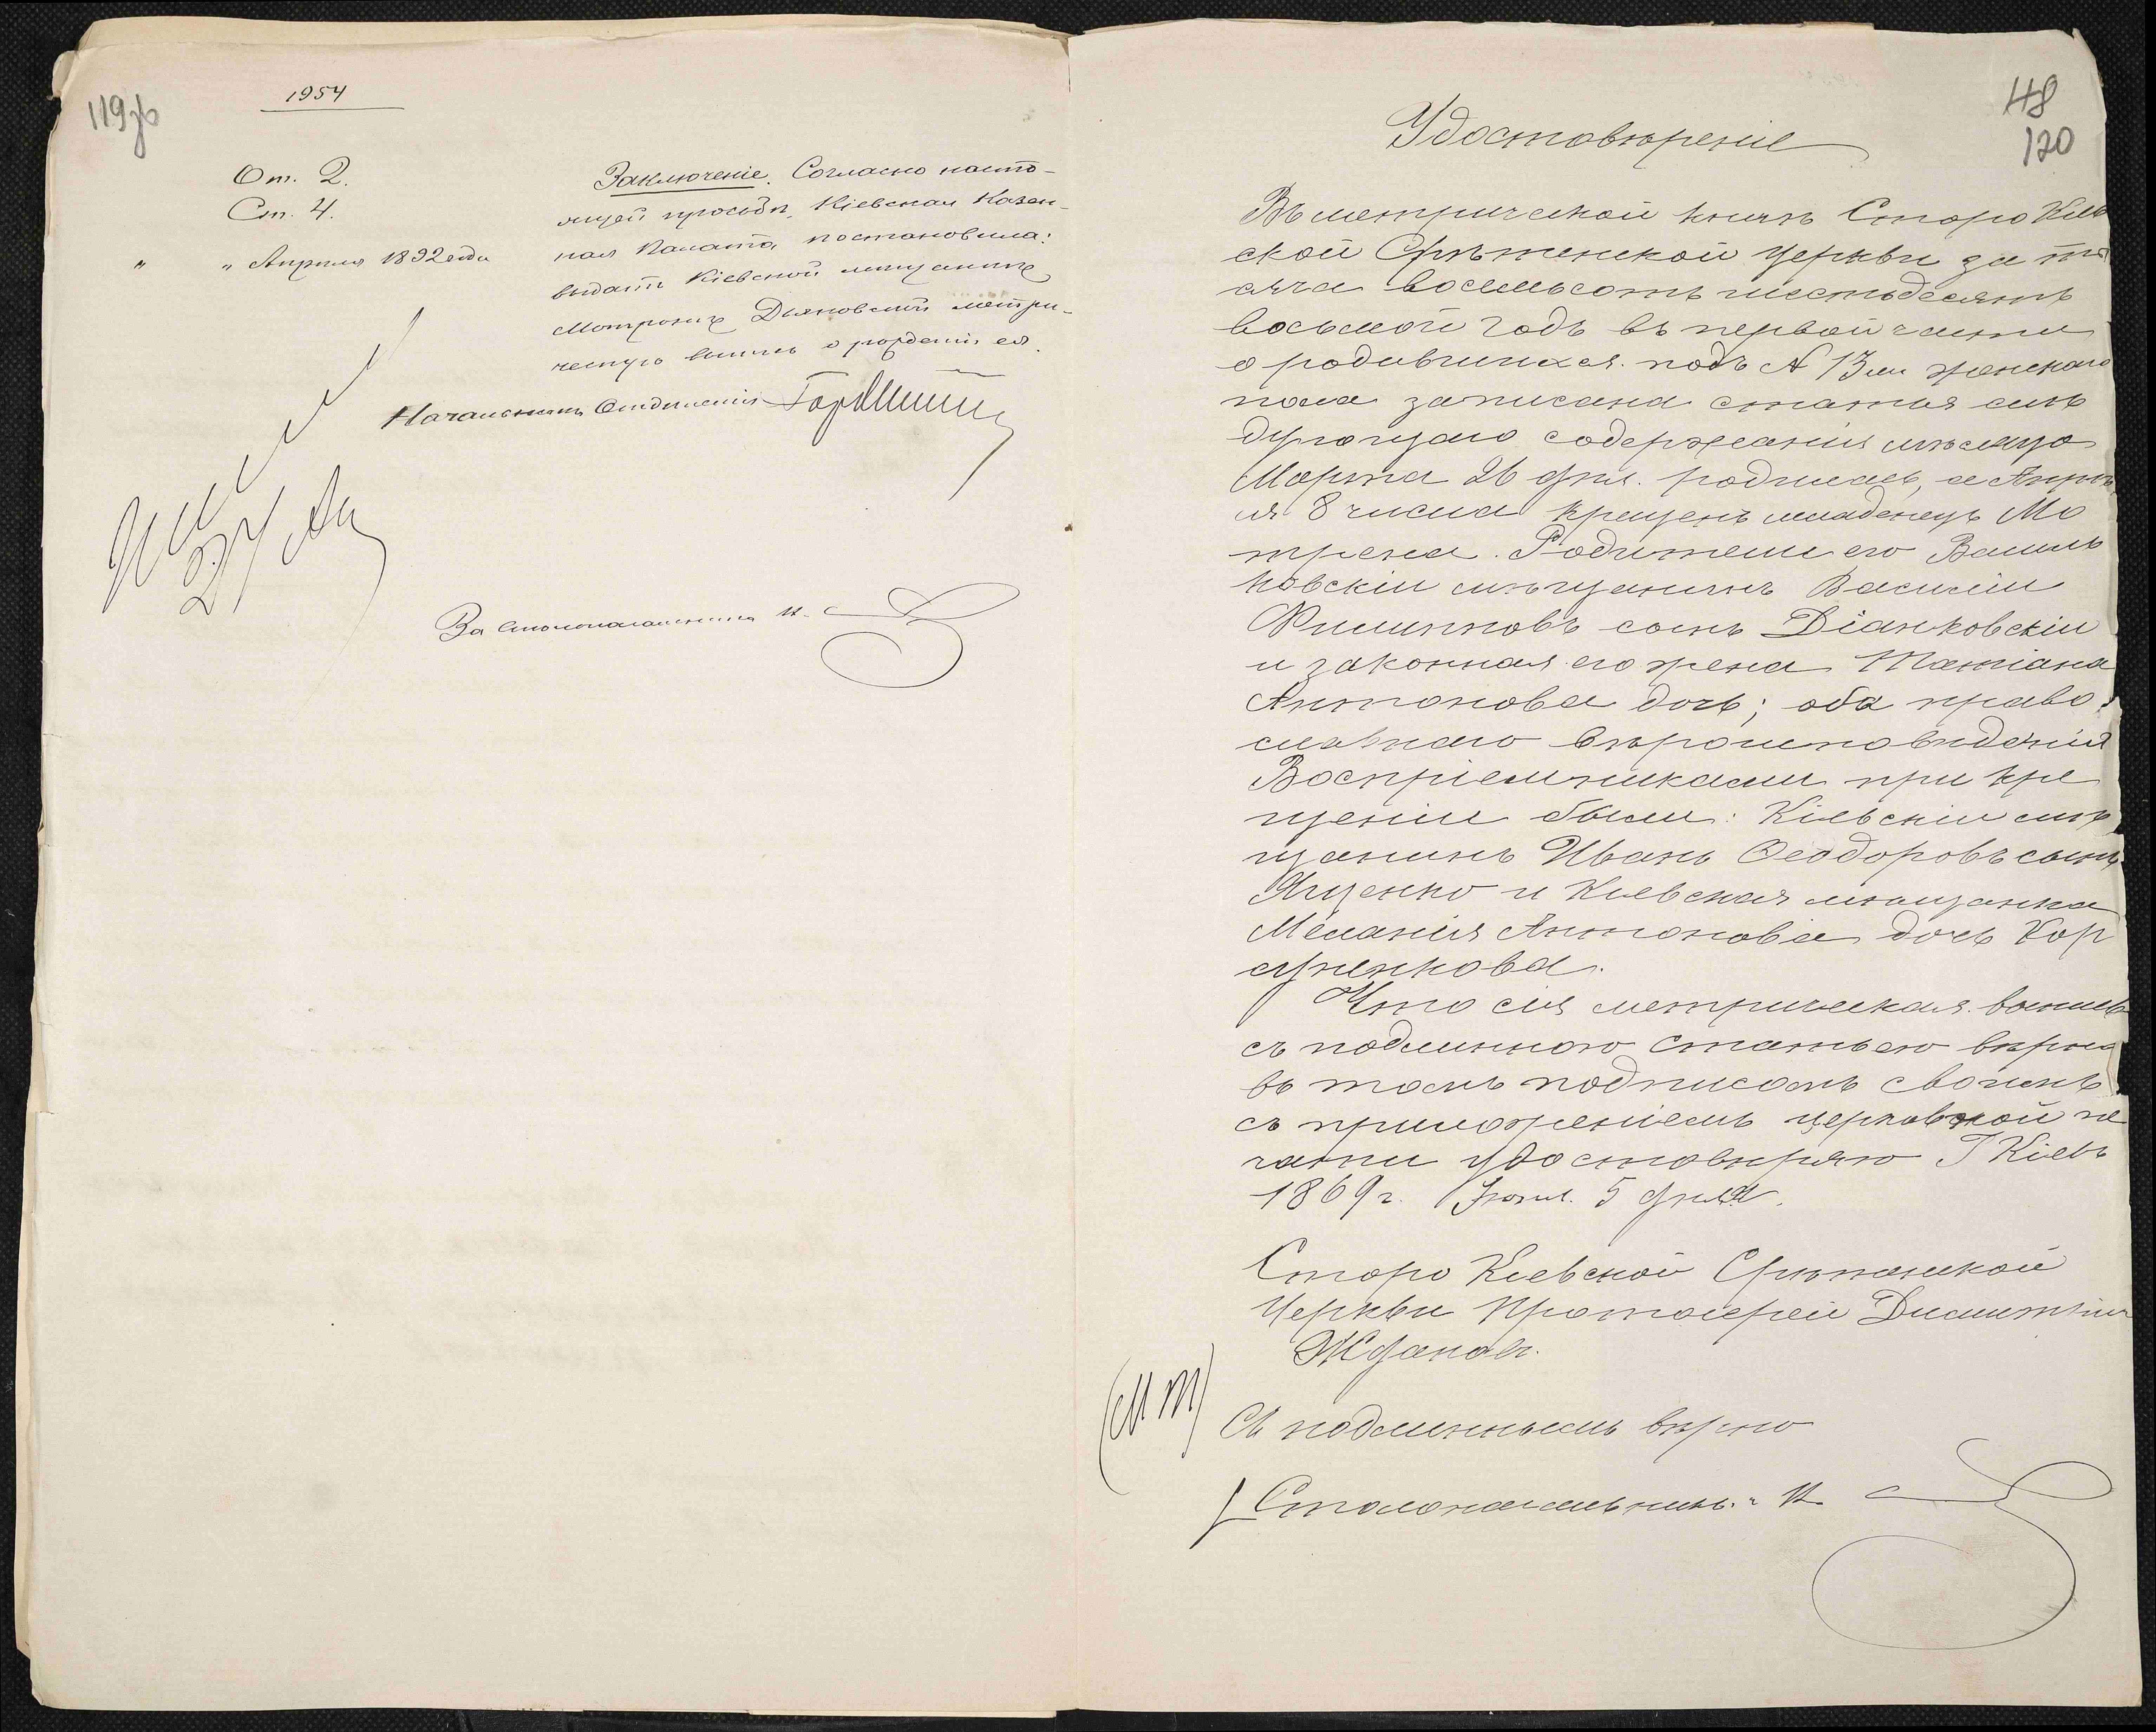 119зв
1954
От. 2.
Ст. 4.
" " Апреля 1892 года
Заключеніе. Согласно насто-
ящей просьбѣ, Кіевская Казен-
ная Палата постановила:
выдать Кіевской мѣщанкѣ
Мотронѣ Дьяновской метри-
ческую выпись о рожденіи ея.
Начальникъ Отдѣленія
За Столоначальника
48
120
Удостовѣреніе
Въ метрической книгѣ Старо Кіев
ской Срѣтенской Церкви за ты
сяча восемьсотъ шестьдесятъ
восьмой годъ въ первой части
о родившихся подъ № 13 м женскаго
пола записана статья слѣ
дующаго содержанія мѣсяца
Марта 26 дня родилась, а Апрѣ
ля 8 числа крещенъ младенецъ Мо
трена. Родители его Василь
ковскій мѣщанинъ Василій
Филиповъ сынъ Діанковскій
и законная его жена Татіана
Антонова дочь; оба право
славнаго вѣроисповѣденія
Воспріемниками при кре
щеніи были: Кіевскій мѣ
щанинъ Иванъ Ѳеодоровъ сынъ
Ященко и Киевская мѣщанка
Меланія Антонова дочь Кор
суненкова.
Что сія метрическая выпись
съ подлинною статьею вѣрна
въ томъ подписомъ своимъ
съ приложеніемъ церковной пе
чати удостовѣряю Г Кіевъ
1869 г. Іюня 5 дня.
Старо Киевской Срѣтенской
Церкви Протоіерей Димитрій
Ждановъ.
(М П)
Съ подлиннымъ вѣрно
Столоначальникъ